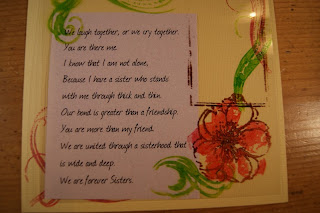 We laugh together, or we cry together.
You are there me.
I know that I am not alone,
Because I have a sister who stands
with me through thick and thin.
Our bond is greater than a friendship.
You are more than my friend.
We are united through a sisterhood that
is wide and deep.
We are forever Sisters.